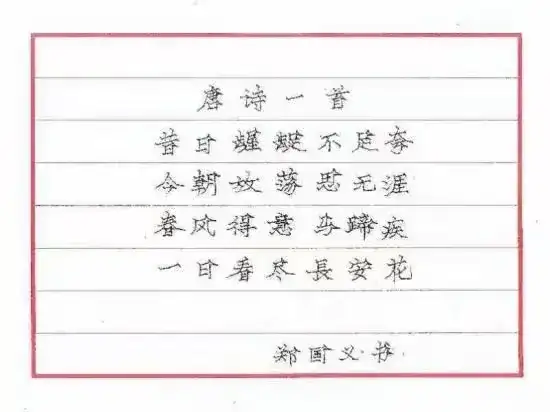 唐诗一首
昔日龌龊不足夸
今朝放荡思无涯
春风得意 马蹄疾
一日看尽長安花
郑国义·书